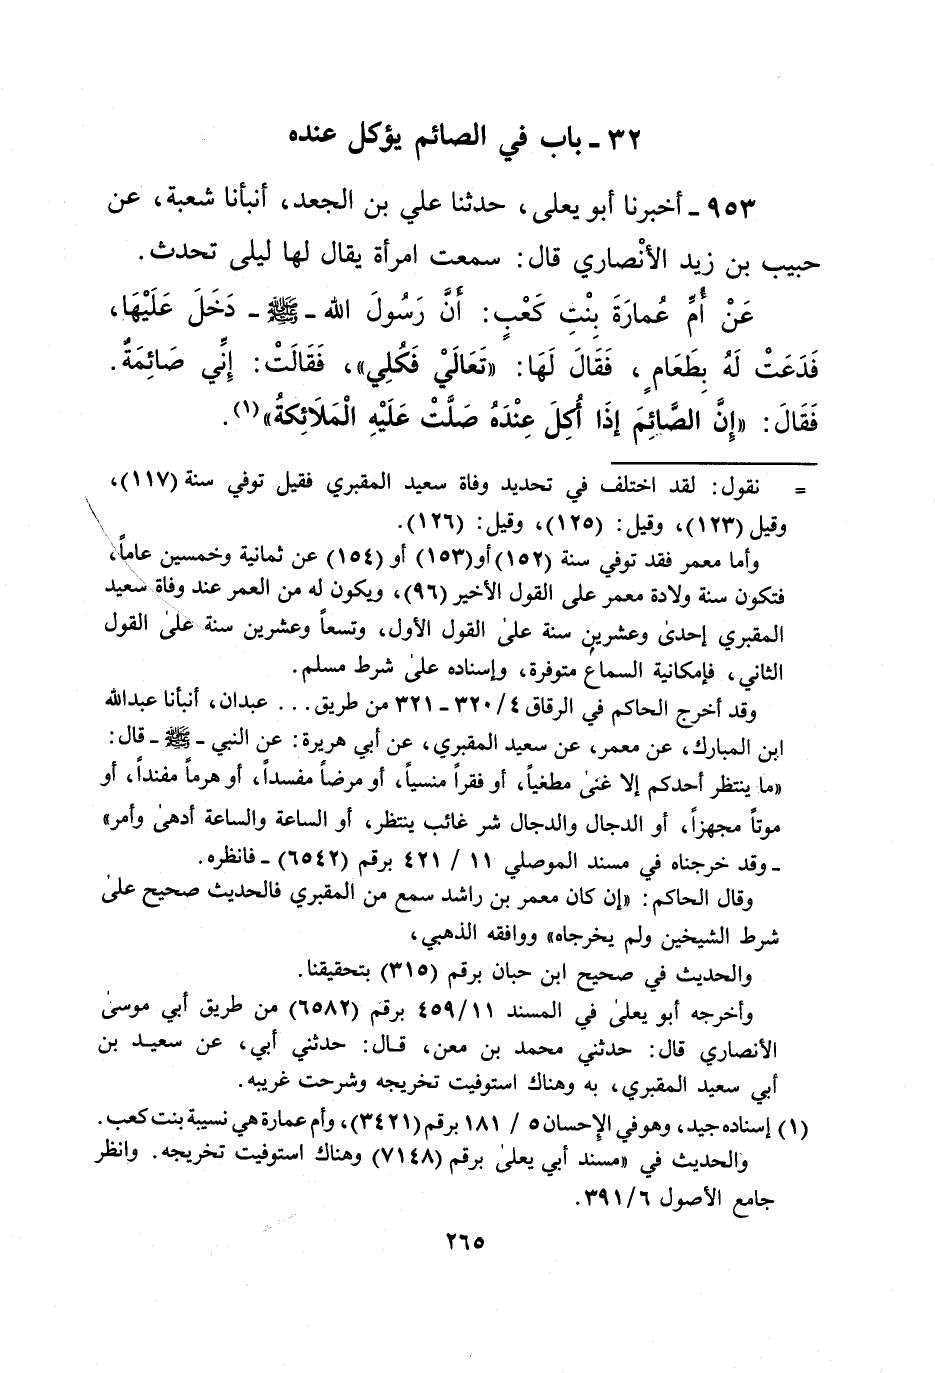 ٣٢ - باب في الصائم يؤكل عنده
٩٥٣ - أخبرنا أبو يعلى، حدثنا علي بن الجعد، أنبأنا شعبة، عن
حبيب بن زيد الأنْصاري قال: سمعت امرأة يقال لها ليلى تحدث.
عَنْ أُمِّ عُمارَةَ بِنْتِ كَعْبٍ: أَنَّ رَسُولَ الله - ﷺ - دَخَلَ عَلَيْهَا،
فَدَعَتْ لَهُ بِطَعَامٍ، فَقَالَ لَهَا: «تَعَالَيْ فَكُلِي»، فَقَالَتْ: إِنِّي صَائِمَةٌ.
فَقَالَ: «إِنَّ الصَّائِمَ إِذَا أُكِلَ عِنْدَهُ صَلَّتْ عَلَيْهِ الْمَلَائِكَةُ»(١).
= نقول: لقد اختلف في تحديد وفاة سعيد المقبري فقيل توفي سنة (١١٧)،
وقيل (١٢٣)، وقيل: (١٢٥)، وقيل: (١٢٦).
وأما معمر فقد توفي سنة (١٥٢) أو(١٥٣) أو (١٥٤) عن ثمانية وخمسين عاماً،
فتكون سنة ولادة معمر على القول الأخير (٩٦)، ويكون له من العمر عند وفاة سعيد
المقبري إحدىٰ وعشرين سنة علىٰ القول الأول، وتسعاً وعشرين سنة علىٰ القول
الثاني، فإمكانية السماع متوفرة، وإسناده علىٰ شرط مسلم.
وقد أخرج الحاكم في الرقاق ٤/ ٣٢٠ - ٣٢١ من طريق... عبدان، أنبأنا عبدالله
ابن المبارك، عن معمر، عن سعيد المقبري، عن أبي هريرة: عن النبي - ﷺ - قال:
«ما ينتظر أحدكم إلا غنىٰ مطغياً، أو فقراً منسياً، أو مرضاً مفسداً، أو هرماً مفنداً، أو
موتاً مجهزاً، أو الدجال والدجال شر غائب ينتظر، أو الساعة والساعة أدهىٰ وأمر»
- وقد خرجناه في مسند الموصلي ١١ / ٤٢١ برقم (٦٥٤٢) - فانظره.
وقال الحاكم: «إن كان معمر بن راشد سمع من المقبري فالحديث صحيح علىٰ
شرط الشيخين ولم يخرجاه» ووافقه الذهبي،
والحديث في صحيح ابن حبان برقم (٣١٥) بتحقيقنا.
وأخرجه أبو يعلىٰ في المسند ٤٥٩/١١ برقم (٦٥٨٢) من طريق أبي موسىٰ
الأنصاري قال: حدثني محمد بن معن، قال: حدثني أبي، عن سعيد بن
أبي سعيد المقبري، به وهناك استوفيت تخريجه وشرحت غريبه.
(١) إسناده جيد، وهو في الإحسان ٥ / ١٨١ برقم (٣٤٢١)، وأم عمارة هي نسيبة بنت كعب.
والحديث في «مسند أبي يعلىٰ برقم (٧١٤٨) وهناك استوفيت تخريجه. وانظر
جامع الأصول ٣٩١/٦.
٢٦٥